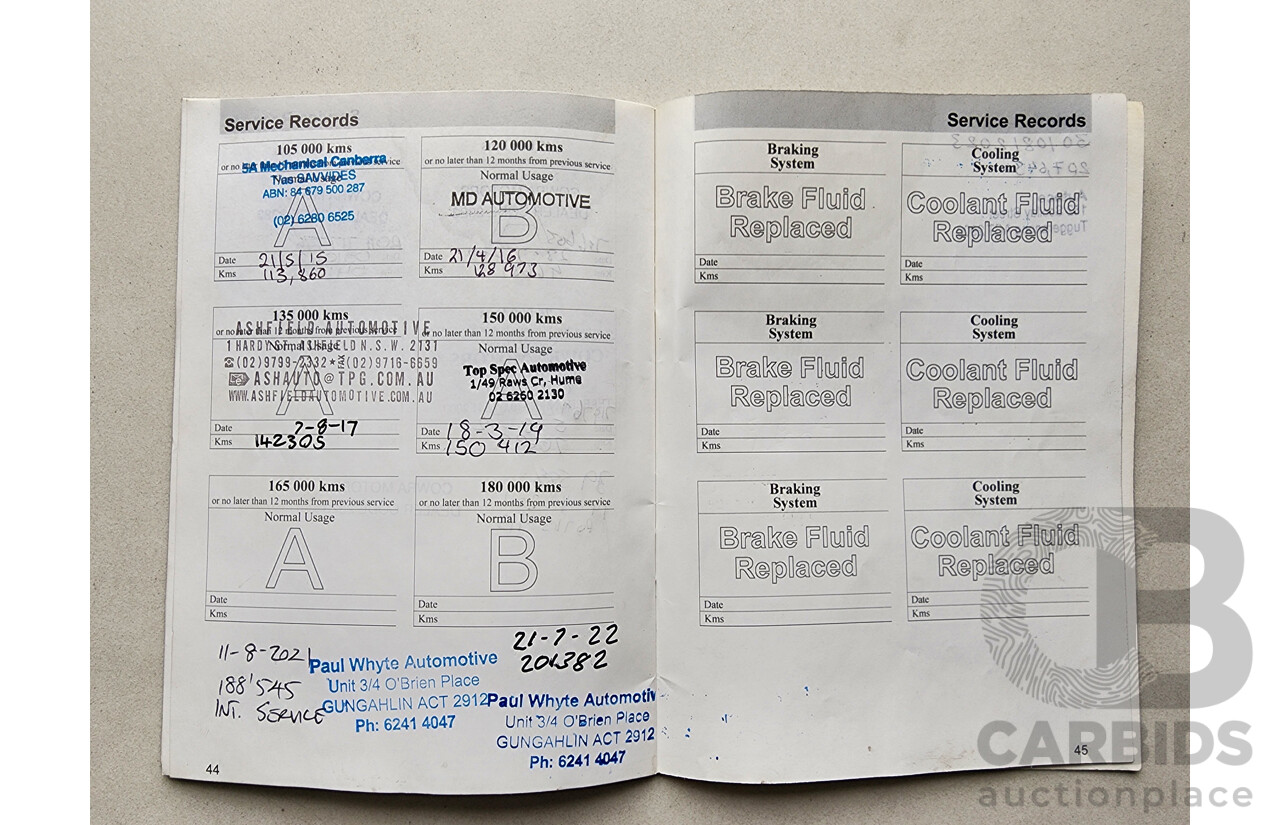 Service Records
105 000 kms
or no later than 12 months from previous service
5A Mechanical Canberra
Normal Usage
Tas SAVVIDES
ABN: 84 679 500 287
(02) 6280 6525
A
Date 21/5/15
Kms 113,860
120 000 kms
or no later than 12 months from previous service
Normal Usage
MD AUTOMOTIVE
B
Date 21/4/16
Kms 128 973
135 000 kms
or no later than 12 months from previous service
ASHFIELD AUTOMOTIVE
Normal Usage
1 HARDY ST. ASHFIELD N.S.W. 2131
(02)9799-2332 FAX (02)9716-6659
ASHAUTO@TPG.COM.AU
WWW.ASHFIELDAUTOMOTIVE.COM.AU
A
Date 2-8-17
Kms 142305
150 000 kms
or no later than 12 months from previous service
Normal Usage
Top Spec Automotive
1/49 Raws Cr, Hume
02 6260 2130
A
Date 18-3-19
Kms 150 412
165 000 kms
or no later than 12 months from previous service
Normal Usage
A
Date
Kms
180 000 kms
or no later than 12 months from previous service
Normal Usage
B
Date
Kms
11-8-2021
188'545
INT. SERVICE
Paul Whyte Automotive
Unit 3/4 O'Brien Place
GUNGAHLIN ACT 2912
Ph: 6241 4047
21-7-22
201382
Paul Whyte Automotiv
Unit 3/4 O'Brien Place
GUNGAHLIN ACT 2912
Ph: 6241 4047
44
Service Records
Braking
System
Brake Fluid
Replaced
Date
Kms
Cooling
System
Coolant Fluid
Replaced
Date
Kms
Braking
System
Brake Fluid
Replaced
Date
Kms
Cooling
System
Coolant Fluid
Replaced
Date
Kms
Braking
System
Brake Fluid
Replaced
Date
Kms
Cooling
System
Coolant Fluid
Replaced
Date
Kms
45
CARBIDS
auctionplace